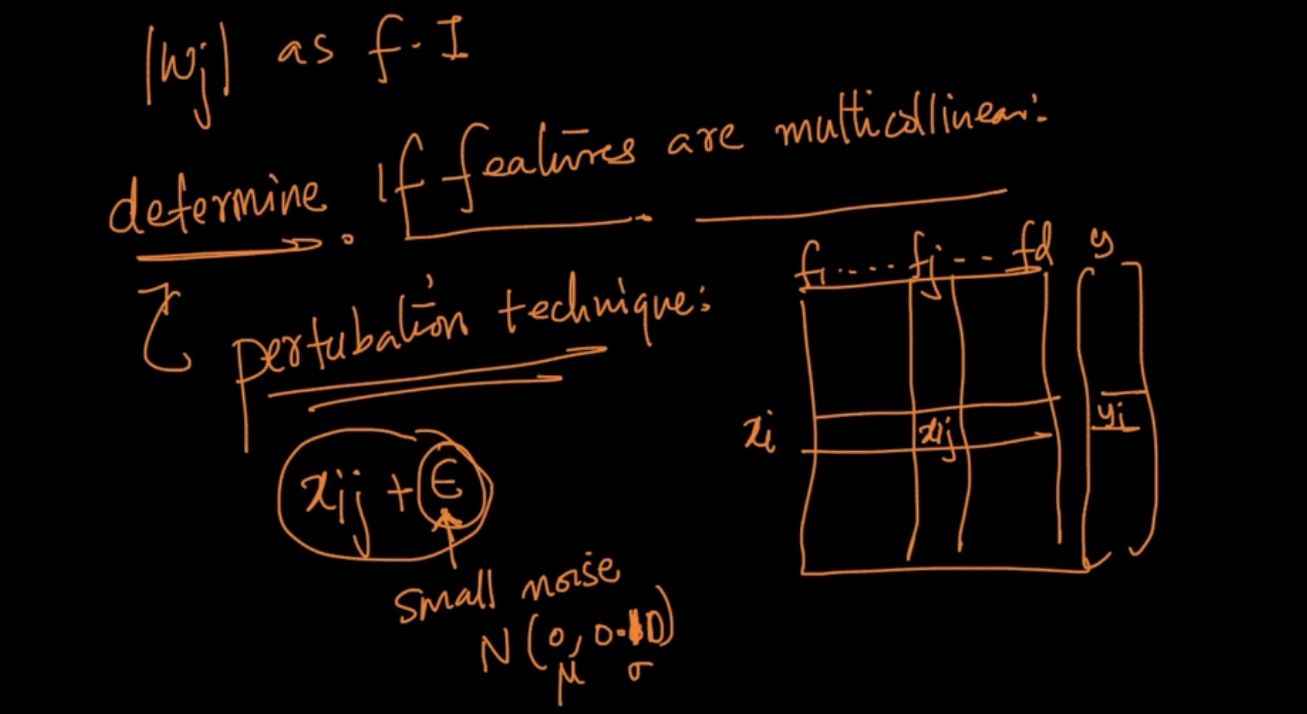 |wj| as f.I
determine. If features are multicollinear:
pertubation technique:
xij + ϵ
small noise
N (0, 0.10)
μ σ
f1.... fj... fd y
xi xij yi